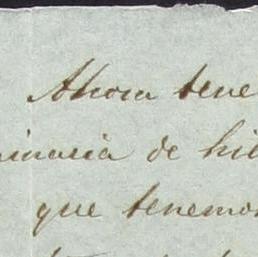 Ahora tene
inaria de hil
que tenemo